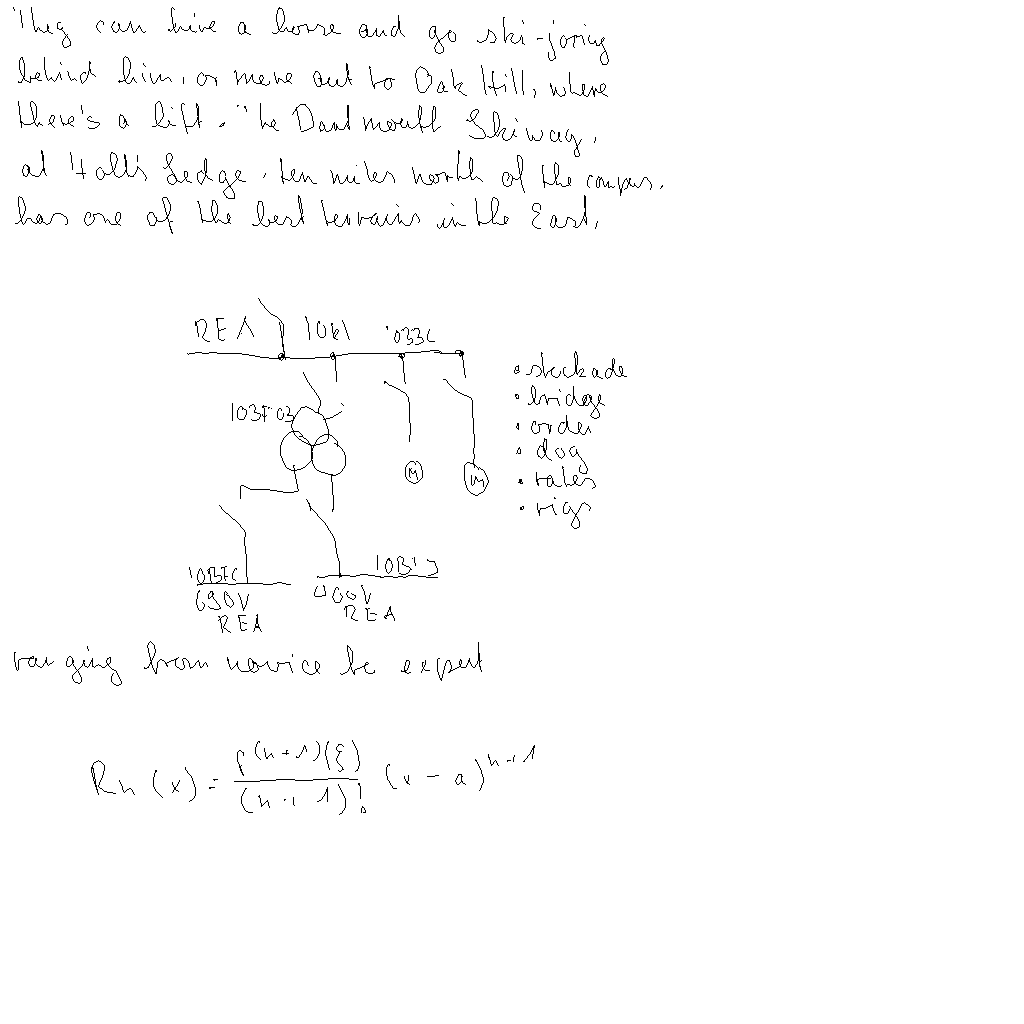 They can hire a horse and go ski-joring
behind him, or move out to Oak Hill, where
there's a lift. The Dartmouth Skiway,
at Holt's Ledge, ten miles north of the campus,
has one of the best terrains in the East,
REA
103F03
M
M
690V
REA
400V
REA
• stockade
• bridge
• order
• dog
• rates
• rigs
ranging from novice to expert
Rn(x) = f^(n+1)(ξ) / (n+1)! (x - a)^n+1